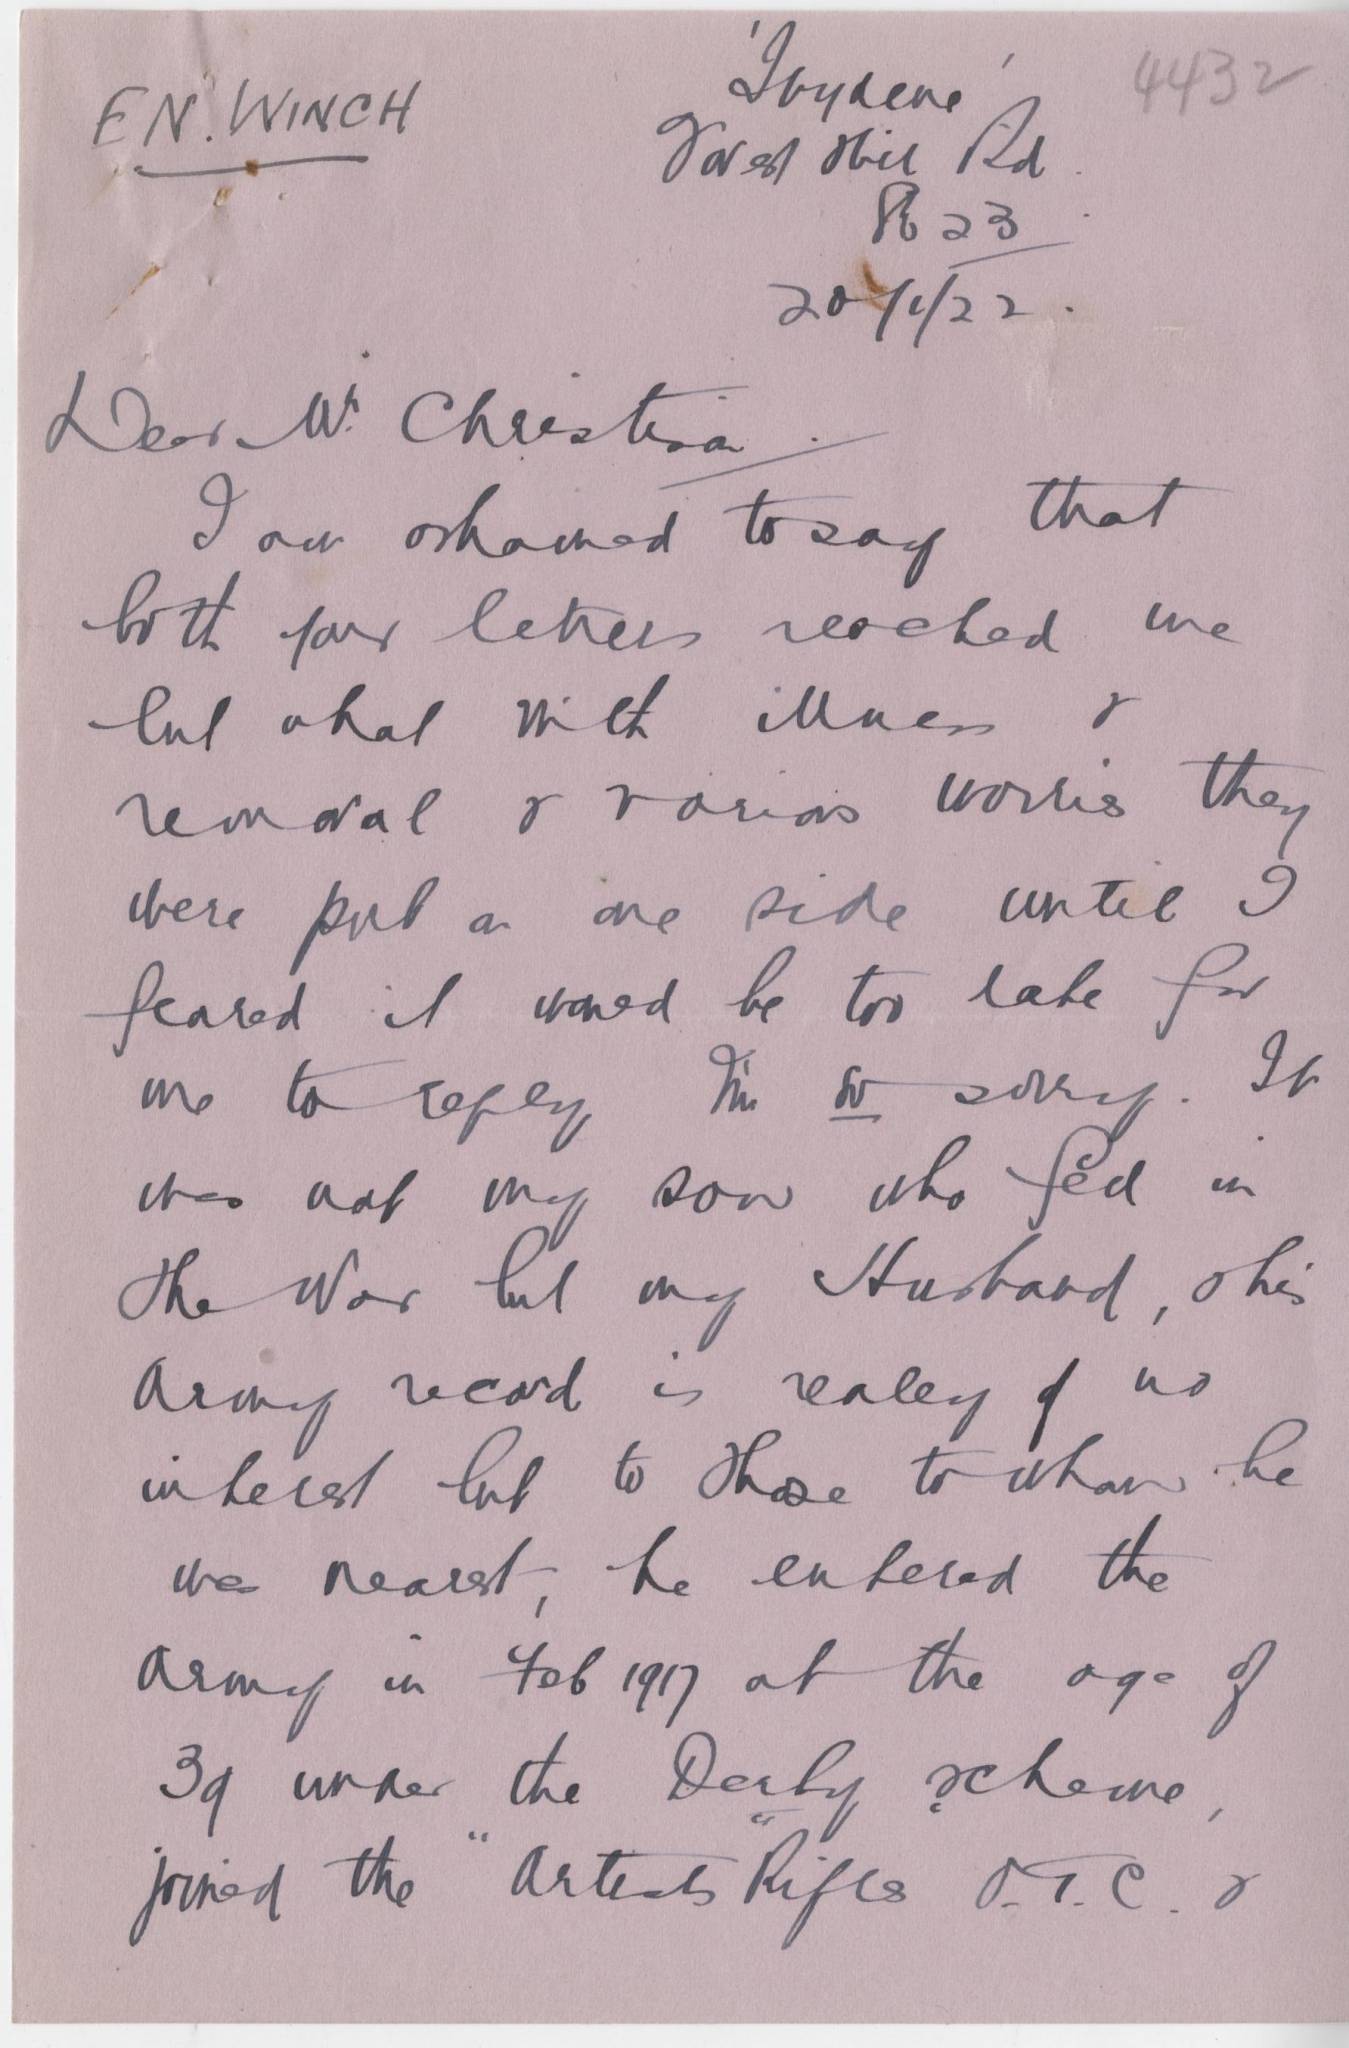 E N. WINCH
4432
'Ivydene'
Forest Hill Rd.
SE 23
20/1/22.
Dear Mr. Christian.
I am ashamed to say that
both your letters reached me
but what with illness &
removal & various worries they
were put on one side until I
feared it would be too late for
me to reply I'm so sorry. It
was not my son who fell in
the War but my Husband, & his
Army record is really of no
interest but to those to whom he
was nearest, he entered the
Army in Feb 1917 at the age of
39 under the Derby scheme,
joined the "Artists" Rifles O.T.C. &